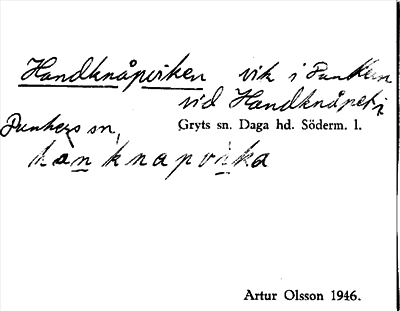 Handknåpviken vik i Dunkern
vid Handknåpet i
Dunkers sn, Gryts sn. Daga hd. Söderm. l.
hànknapvika
Artur Olsson 1946.